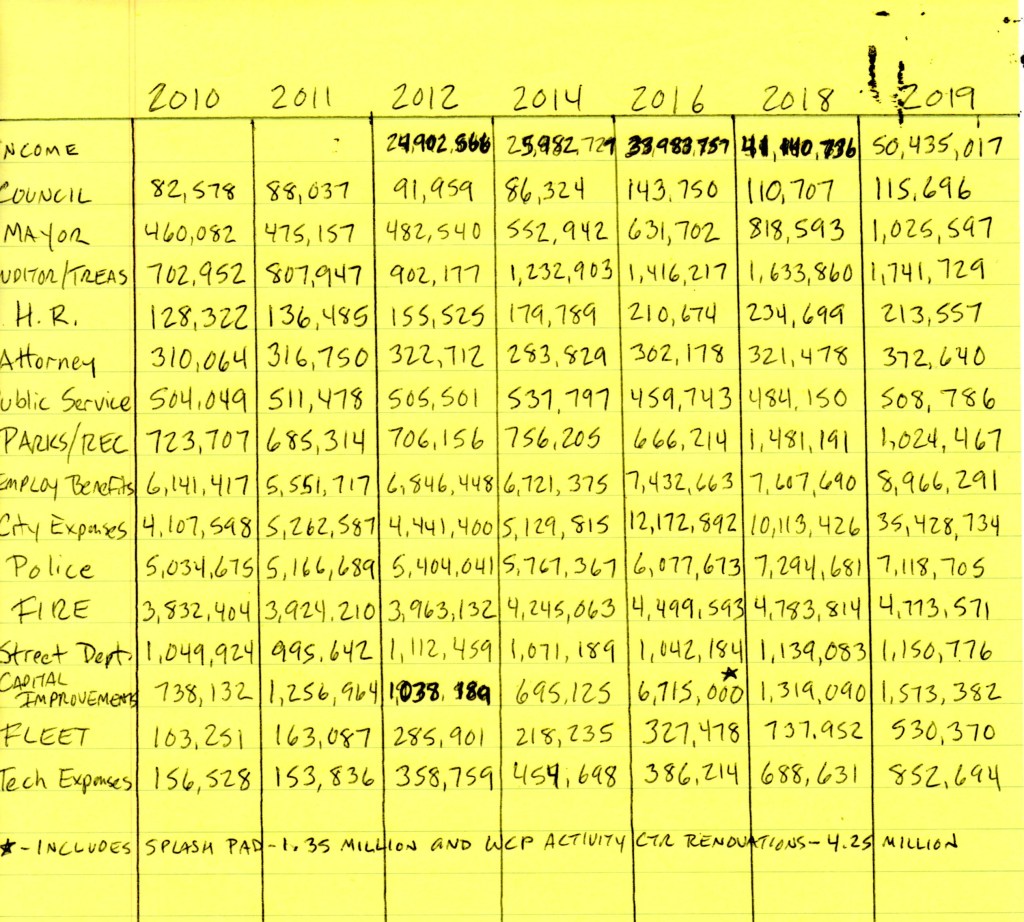 2010 2011 2012 2014 2016 2018 2019
NCOME 24,902,566 25,982,729 33,983,757 41,140,736 50,435,017
COUNCIL 82,578 88,037 91,959 86,324 143,750 110,707 115,696
MAYOR 460,082 475,157 482,540 552,942 631,702 818,593 1,025,597
UDITOR/TREAS 702,952 807,947 902,177 1,232,903 1,416,217 1,633,860 1,741,729
H.R. 128,322 136,485 155,525 179,789 210,674 234,699 213,557
Attorney 310,064 316,750 322,712 283,829 302,178 321,478 372,640
ublic Service 504,049 511,478 505,501 537,797 459,743 484,150 508,786
PARKS/REC 723,707 685,314 706,156 756,205 666,214 1,481,191 1,024,467
EMPLOY Benefits 6,141,417 5,551,717 6,846,448 6,721,375 7,432,663 7,607,690 8,966,291
City Expenses 4,107,598 5,262,587 4,441,400 5,129,815 12,172,892 10,113,426 35,428,734
Police 5,034,675 5,166,689 5,404,041 5,767,367 6,077,673 7,294,681 7,118,705
FIRE 3,832,404 3,924,210 3,963,132 4,245,063 4,499,593 4,783,814 4,773,571
Street Dept. 1,049,924 995,642 1,112,459 1,071,189 1,042,184 1,139,083 1,150,776
CAPITAL
IMPROVEMENTS 738,132 1,256,964 1,038,189 695,125 6,715,000★ 1,319,090 1,573,382
FLEET 103,251 163,087 285,901 218,235 327,478 737,952 530,370
Tech Expenses 156,528 153,836 358,759 454,698 386,214 688,631 852,694
★-INCLUDES SPLASH PAD-1.35 MILLION AND WCP ACTIVITY CTR RENOVATIONS-4.25 MILLION